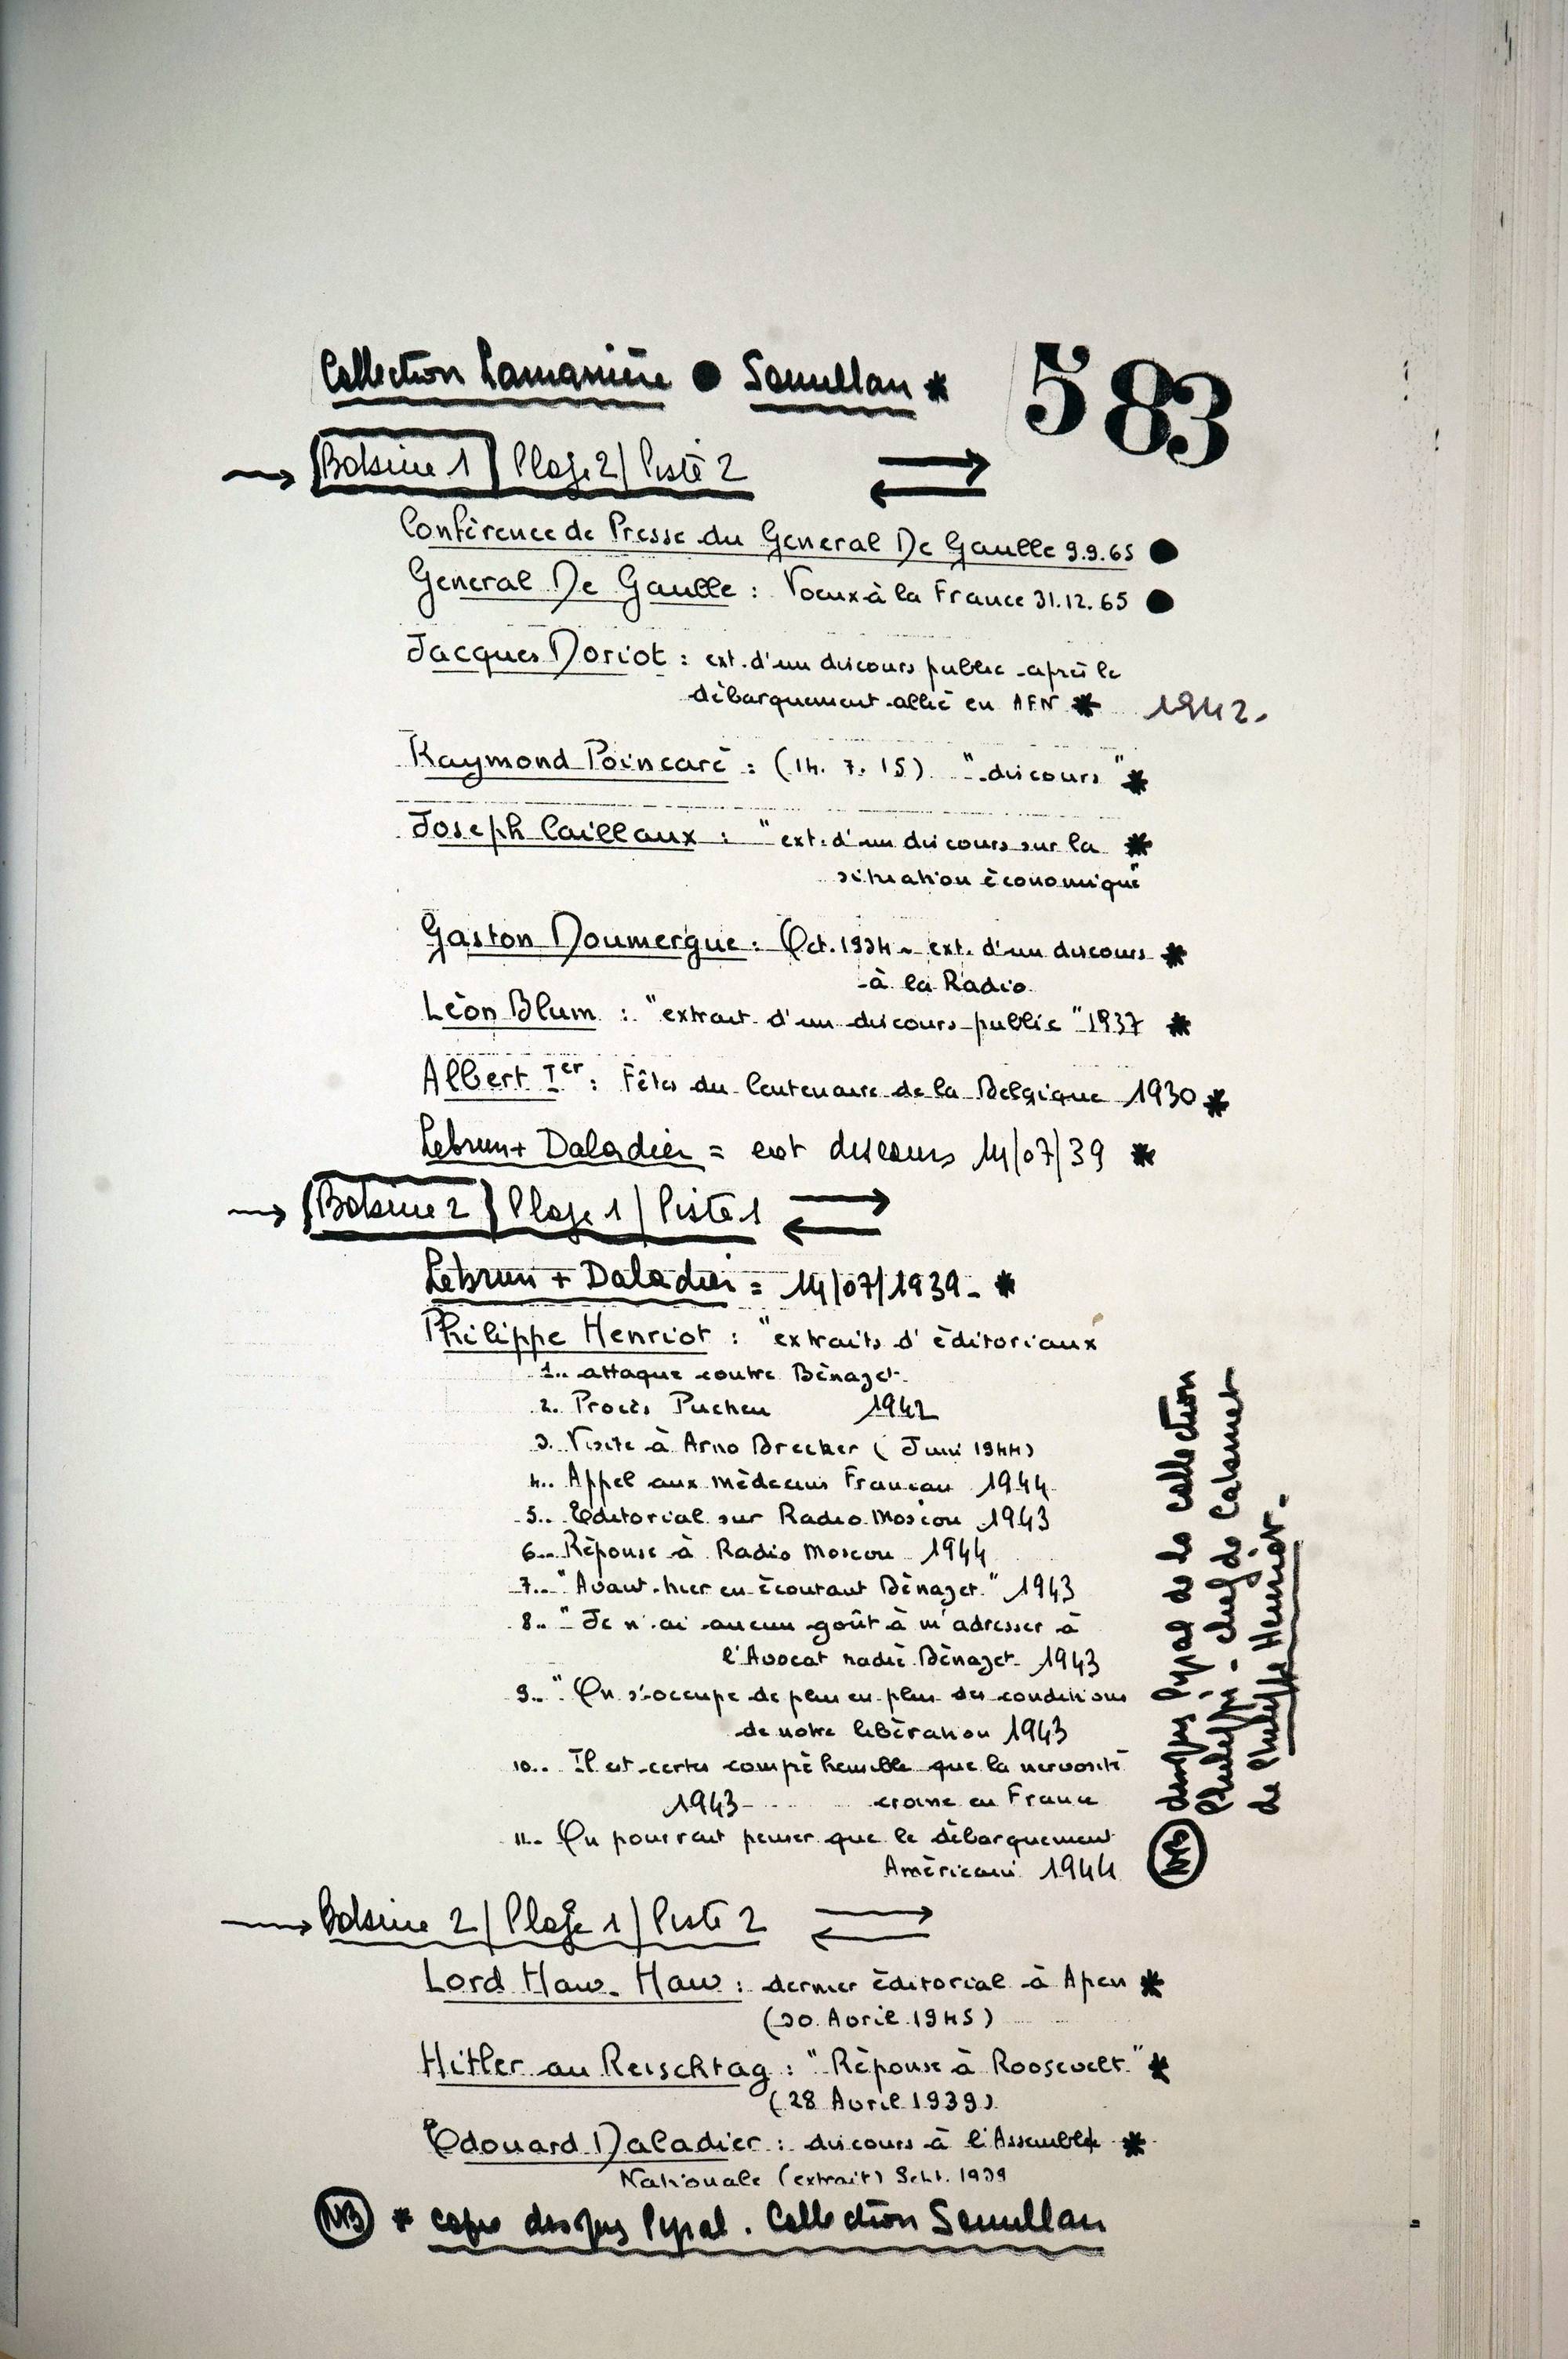 Collection Lamarnière ● Semullan *
583
→ Bobine 1 | Plage 2 | Piste 2
Conférence de Presse du General De Gaulle 9.9.65 ●
General De Gaulle : Voeux à la France 31.12.65 ●
Jacques Doriot : ext. d'un discours public après le
débarquement allié en AFN * 1942.
Raymond Poincaré : (14. 7. 15) " discours " *
Joseph Caillaux : " ext. d'un discours sur la *
situation économique"
Gaston Doumergue : Oct. 1934 - ext. d'un discours *
à la Radio
Léon Blum : "extrait d'un discours public" 1937 *
Albert Ier : Fêtes du Centenaire de la Belgique 1930 *
Lebrun + Daladier = ext discours 14/07/39 *
→ Bobine 2 | Plage 1 | Piste 1
Lebrun + Daladier = 14/07/1939 - *
Philippe Henriot : "extraits d'éditoriaux
1.. attaque contre Bénazet.
2. Procès Pucheu 1942
3. Visite à Arno Brecker ( Juin 1944)
4.. Appel aux médecins Français 1944
5.. Editorial sur Radio Moscou 1943
6.. Réponse à Radio Moscou 1944
7.. "Avant-hier en écoutant Bénazet." 1943
8.. " Je n'ai aucun goût à m'adresser à
l'Avocat radié Bénazet. 1943
9.. " On s'occupe de plus en plus des conditions
de notre libération 1943
10.. Il est certes compréhensible que la nervosité
1943 croisse en France
11.. On pourrait penser que le débarquement
Américain 1944
NB disques Pyral de la collection
Philippe - chef de Cabinet
de Philippe Henriot -
→ Bobine 2 | Plage 1 | Piste 2
Lord Haw-Haw : dernier éditorial à Apen *
(30 Avril 1945)
Hitler au Reischtag : " Réponse à Roosevelt." *
(28 Avril 1939)
Edouard Daladier : discours à l'Assemblée *
Nationale (extrait) Sept. 1939
NB * copie disques Pyral. Collection Semullan